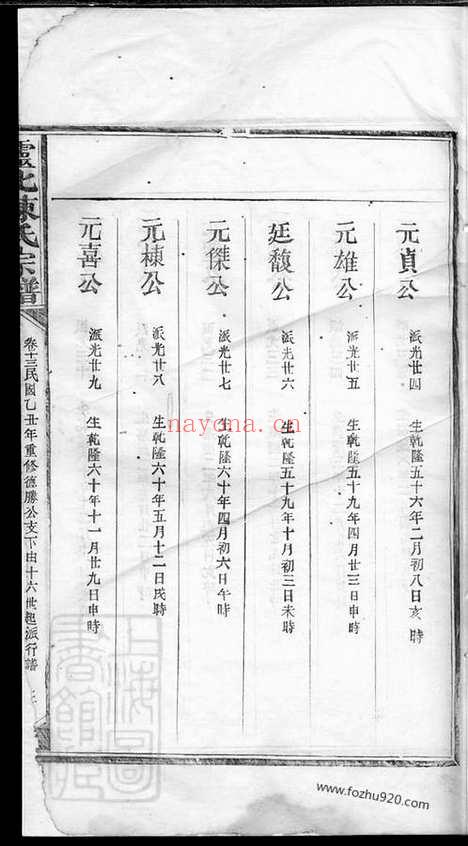 元貞公 派光廿四 生乾隆五十六年二月初八日亥時
元雄公 派光廿五 生乾隆五十九年四月廿三日申時
廷馥公 派光廿六 生乾隆五十九年十月初三日未時
元傑公 派光廿七 生乾隆六十年四月初六日午時
元棟公 派光廿八 生乾隆六十年五月十二日戌時
元喜公 派光廿九 生乾隆六十年十一月廿九日申時
北陳氏宗譜 卷十三民國乙丑年重修德勝公支下由十六世起派行譜 三
nayona.cn
上海圖書館藏
www.fozhu920.com